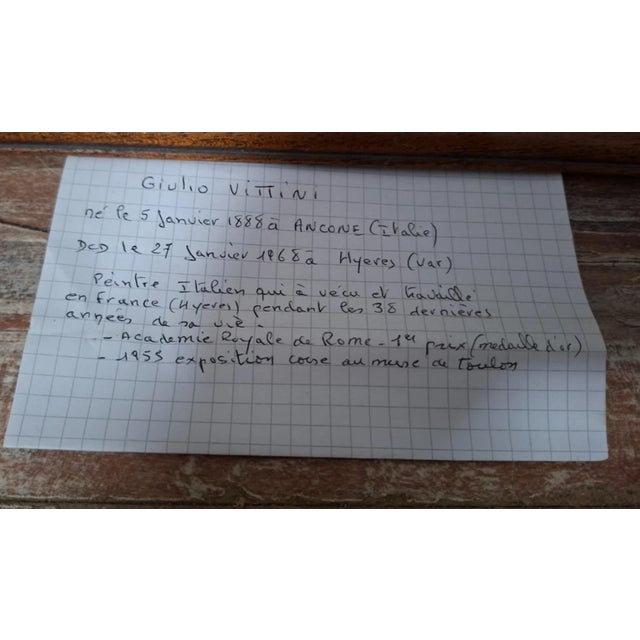 Giulio VITTINI
né le 5 Janvier 1888 à ANCONE (Italie)
DCD le 27 Janvier 1968 à Hyeres (Var)
Peintre Italien qui à vécu et travaillé
en France (Hyeres) pendant les 38 dernières
années de sa vie.
- Academie Royale de Rome - 1er prix (medaille d'or)
- 1955 exposition corse au muse de Toulon